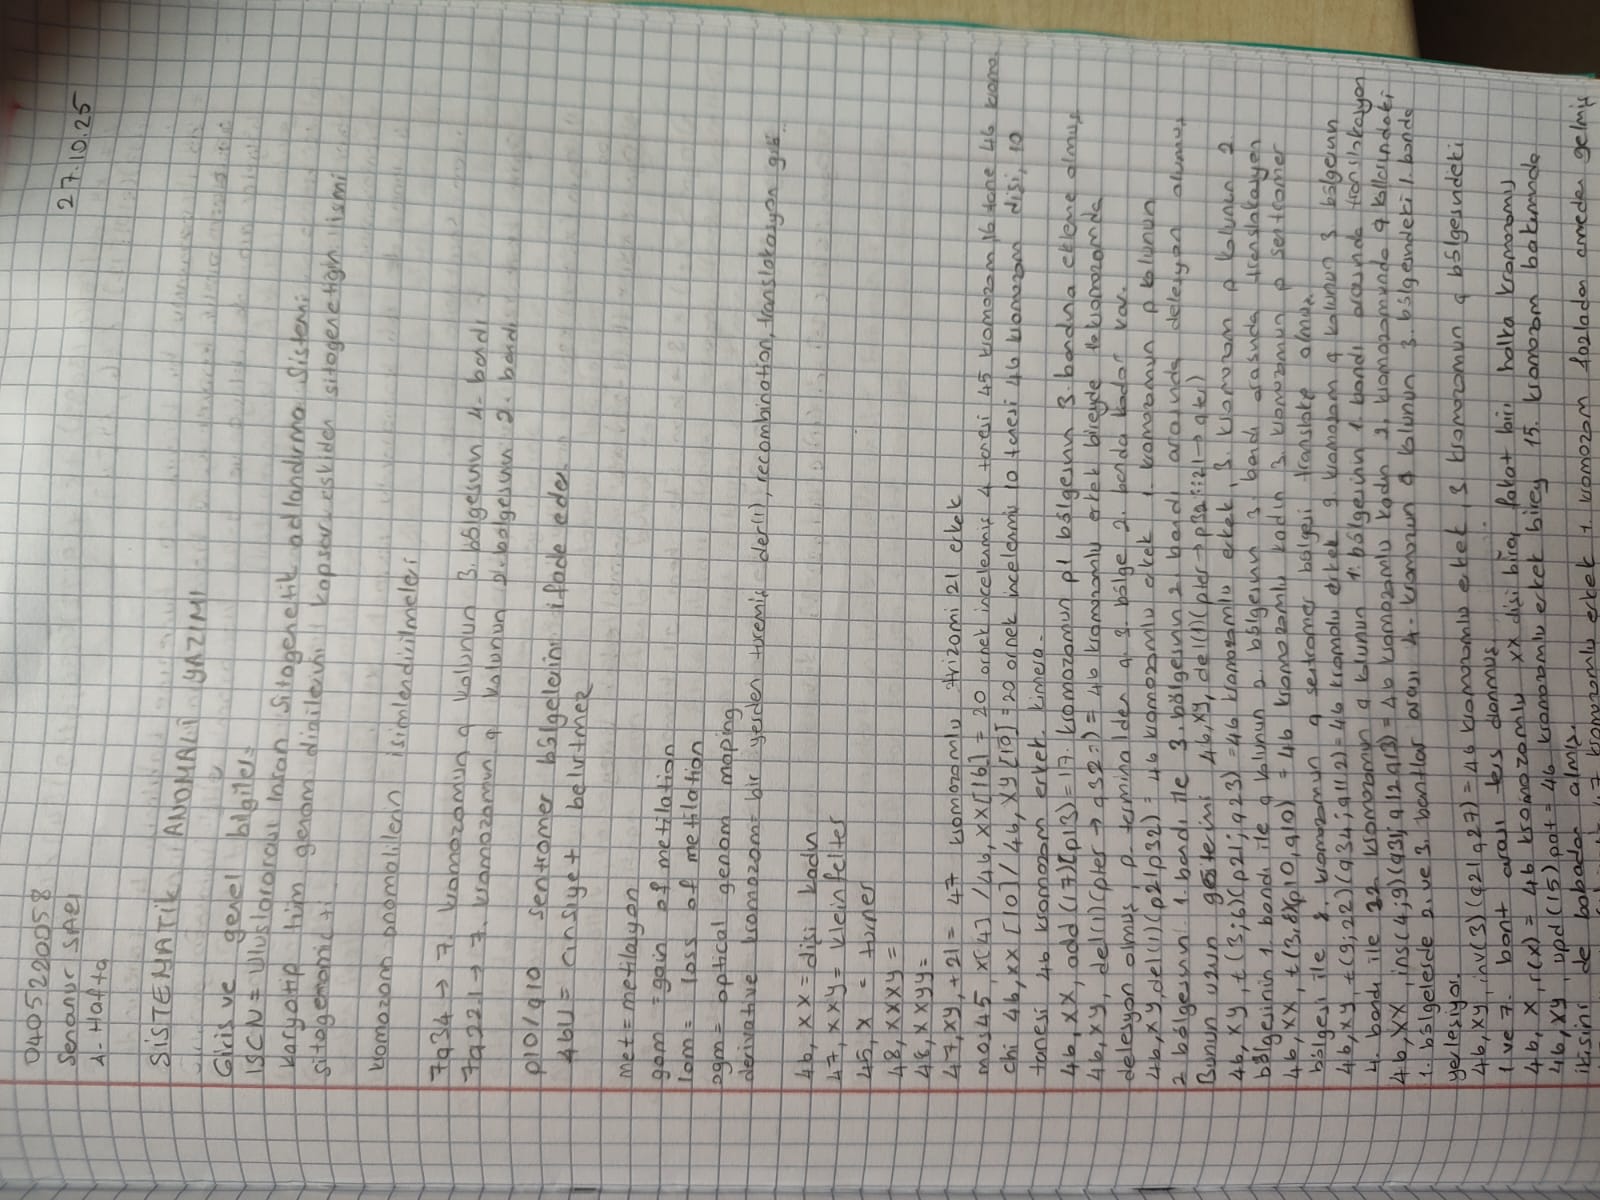 04052200058
27.10.25
Senanur SARI
2-Hafta
SİSTEMATİK ANOMALİ YAZIMI
Giriş ve genel bilgiler
ISCN = Uluslararası İnsan Sitogenetik adlandırma Sistemi
Karyotip tüm genom dizilerini kapsar, eskiden sitogenetiğin ismi
sitogenomic
kromozom anomolilerin isimlendirilmeleri
7q34 → 7. kromozomun q kolunun 3. bölgesinin 4. bandı
7q22.1 → 7. kromozomun q kolunun 2. bölgesinin 2. bandı
p10/q10 sentromer bölgelerini ifade eder
46U = cinsiyet belirtmek
met = metilasyon
gom = gain of metilation
lom = loss of metilation
ogm = optical genom maping
derivative kromozom = bir yerden türemiş der(1), recombination, translokasyon gibi..
46, xx = dişi kadın
47, xxy = kleinfelter
45, x = turner
48, xxxy =
48, xxyy =
47, xy, +21 = 47 kromozomlu trizomi 21 erkek
mos 45, x[4] / 46, xx[16] = 20 örnek incelenmiş 4 tanesi 45 kromozom 16 tane 46 kromo
chi 46, xx [10] / 46, xy [10] = 20 örnek incelenmiş 10 tanesi 46 kromozom dişi, 10
tanesi 46 kromozom erkek kimera.
46, xx, add (17)(p13) = 17. kromozomun p1 bölgesinin 3. bandına ekleme olmuş
46, xy, del(1)(pter → q32::) = 46 kromozomlu erkek bireyde 1. kromozomda
delesyon olmuş, p terminalden q 3. bölge 2. banda kadar var.
46, xy, del (1)(p21p32) = 46 kromozomlu erkek 1. kromozomun p kolunun
2 bölgesinin 1. bandı ile 3. bölgesinin 2 bandı arasında delesyon olmuş
Bunun uzun gösterimi 46, xy, del(1)(pter→p32::p21→qter)
46, xy, t(3;6)(p21;q23) = 46 kromozomlu erkek, 3. kromozom p kolunun 2.
bölgesinin 1 bandı ile q kolunun 2 bölgesinin 3. bandı arasında translokasyon
46, xx, t(3;8)(p10;q10) = 46 kromozomlu kadın 3. kromozomun p sentromer
bölgesi ile 8. kromozomun q sentromer bölgesi transloke olmuş.
46, xy t(9;22)(q34;q11.2) = 46 kromolu erkek 9 kromozom q kolunun 3 bölgenin
4. bandı ile 22 kromozomun q kolunun 1. bölgesinin 1. bandı arasında translokasyon
46, XX, ins(4;9)(q31;q12q13) = 46 kromozomlu kadın 9. kromozomunda q kollarındaki
1. bölgelerde 2. ve 3. bantlar arası 4. kromozomun q kolunun 3. bölgesindeki 1. banda
yerleşiyor.
46, xy, inv(3)(q21q27) = 46 kromozomlu erkek, 3 kromozomun q bölgesindeki
1 ve 7. bant arası ters dönmüş
46, x, r(x) = 46 kromozomlu xx dişi birey fakat biri halka kromozomu
46, xy, upd(15)pat = 46 kromozomlu erkek birey 15. kromozom bakımında
ikisini de babadan almış.
47 kromozomlu erkek + kromozom fazladan anneden gelmiş